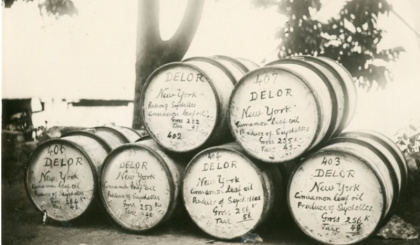 DELOR
New York
Produce of Seychelles
Cinnamon leaf oil
Gross 252
Tare 41
402
407
DELOR
New York
Cinnamon leaf oil
Produce of Seychelles
Gross 255 K
Tare 45
DELOR
New York
Cinnamon leaf oil
Produce of
Seychelles
DELOR
New York
Cinnamon leaf oil
Produce of
Seychelles
Gross 253 K
Tare
DELOR
New York
Cinnamon leaf oil
Produce of Seychelles
Gross
Tare
403
DELOR
New York
Cinnamon leaf oil
Produce of Seychelles
Gross 256 K
Tare